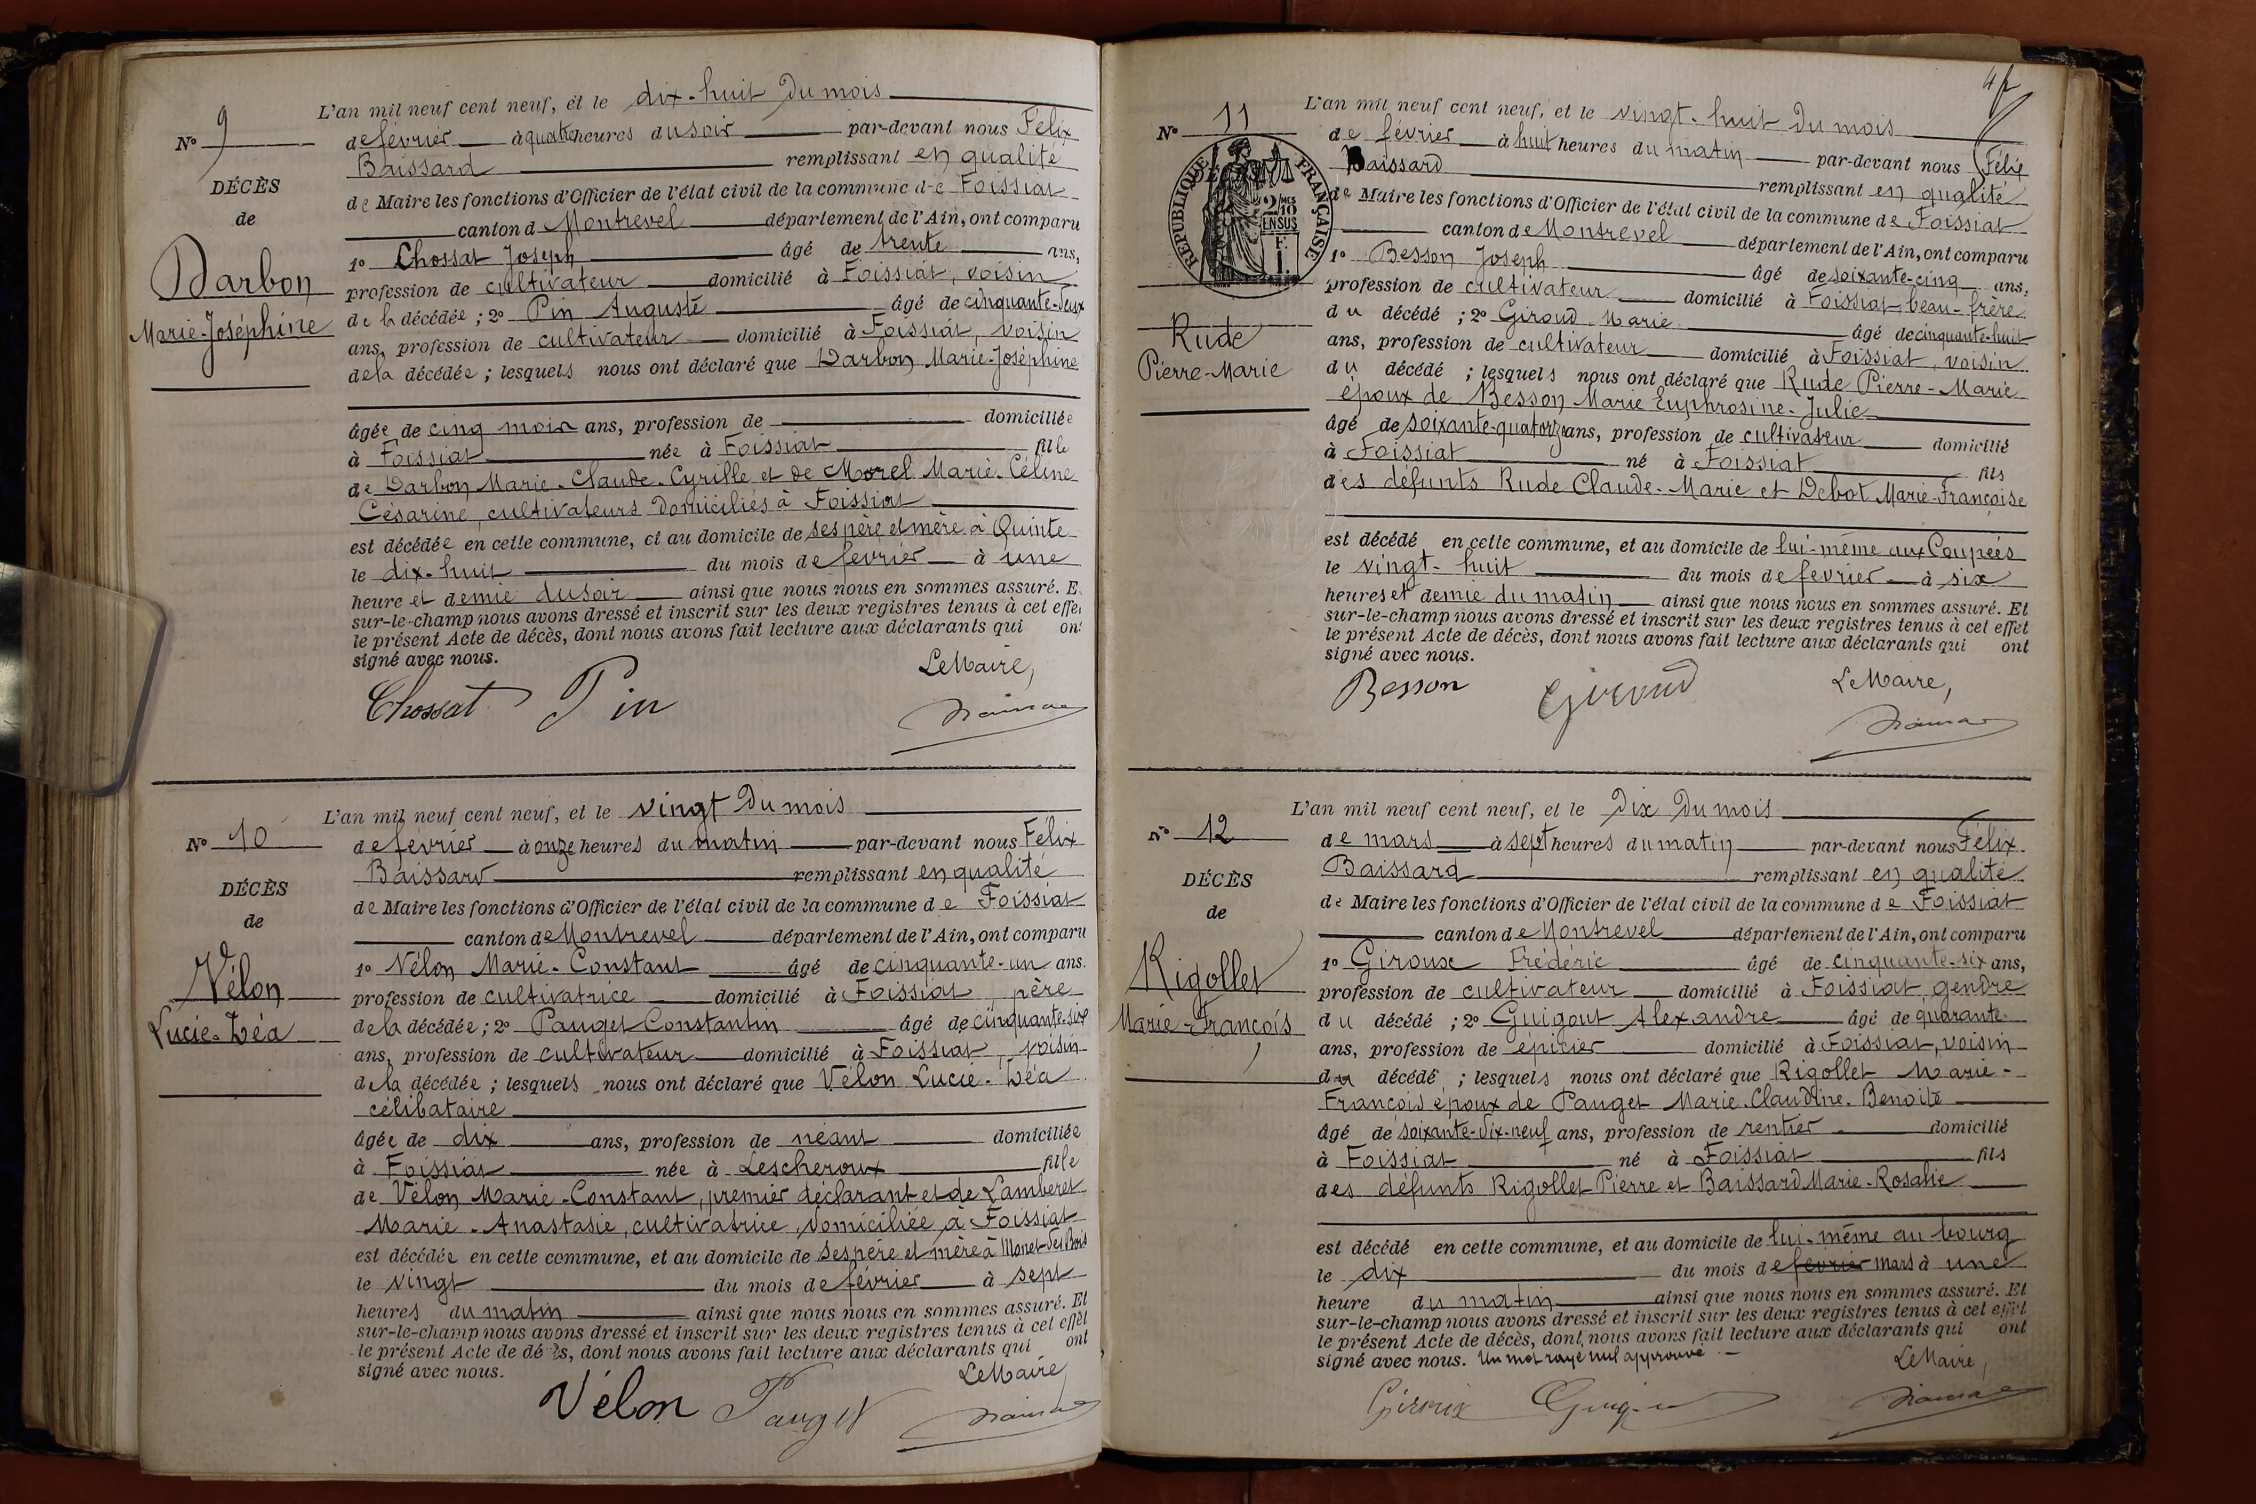 L'an mil neuf cent neuf, et le dix-huit du mois
No 9
de février à quatre heures du soir par-devant nous Félix
Baissard remplissant en qualité
DÉCÈS
de Maire les fonctions d'Officier de l'état civil de la commune de Foissiat
de
canton de Montrevel département de l'Ain, ont comparu
Darbon
1o Chossat Joseph âgé de trente ans,
profession de cultivateur domicilié à Foissiat, voisin
Marie-Joséphine
de la décédée ; 2o Pin Auguste âgé de cinquante-deux
ans, profession de cultivateur domicilié à Foissiat, voisin
de la décédée ; lesquels nous ont déclaré que Darbon Marie-Joséphine
âgée de cinq mois ans, profession de domiciliée
à Foissiat née à Foissiat fille
de Darbon Marie-Claude-Cyrille et de Morel Marie-Céline
Césarine, cultivateurs domiciliés à Foissiat
est décédée en cette commune, et au domicile de ses père et mère à Quinte
le dix-huit du mois de février à une
heure et demie du soir ainsi que nous nous en sommes assuré. E
sur-le-champ nous avons dressé et inscrit sur les deux registres tenus à cet effet
le présent Acte de décès, dont nous avons fait lecture aux déclarants qui ont
signé avec nous.
Le Maire,
Chossat Pin
L'an mil neuf cent neuf, et le vingt du mois
No 10
de février à onze heures du matin par-devant nous Félix
Baissard remplissant en qualité
DÉCÈS
de Maire les fonctions d'Officier de l'état civil de la commune de Foissiat
de
canton de Montrevel département de l'Ain, ont comparu
1o Vélon Marie-Constant âgé de cinquante-un ans.
Vélon
profession de cultivatrice domicilié à Foissiat, père
Lucie-Léa
de la décédée ; 2o Pauget Constantin âgé de cinquante-six
ans, profession de cultivateur domicilié à Foissiat, voisin
de la décédée ; lesquels nous ont déclaré que Vélon Lucie-Léa
célibataire
âgée de dix ans, profession de néant domiciliée
à Foissiat née à Lescheroux fille
de Vélon Marie-Constant, premier déclarant et de Lamberet
Marie-Anastasie, cultivatrice, domiciliée à Foissiat
est décédée en cette commune, et au domicile de ses père et mère à Monet-des-Bois
le vingt du mois de février à sept
heures du matin ainsi que nous nous en sommes assuré. Et
sur-le-champ nous avons dressé et inscrit sur les deux registres tenus à cet effet
le présent Acte de décès, dont nous avons fait lecture aux déclarants qui ont
signé avec nous.
Le Maire,
Vélon Pauget
L'an mil neuf cent neuf, et le vingt-huit du mois
No 11
de février à huit heures du matin par-devant nous Félix
Baissard remplissant en qualité
RÉPUBLIQUE FRANÇAISE
2/10MES
EN SUS
F.
1.
de Maire les fonctions d'Officier de l'état civil de la commune de Foissiat
canton de Montrevel département de l'Ain, ont comparu
1o Besson Joseph âgé de soixante-cinq ans,
profession de cultivateur domicilié à Foissiat, beau-frère
du décédé ; 2o Giroud Marie âgé de cinquante-huit
Rude
ans, profession de cultivateur domicilié à Foissiat, voisin
Pierre-Marie
du décédé ; lesquels nous ont déclaré que Rude Pierre-Marie
époux de Besson Marie Euphrosine-Julie
âgé de soixante-quatorze ans, profession de cultivateur domicilié
à Foissiat né à Foissiat fils
des défunts Rude Claude-Marie et Debat Marie-Françoise
est décédé en cette commune, et au domicile de lui-même aux Coupées
le vingt-huit du mois de février à six
heures et demie du matin ainsi que nous nous en sommes assuré. Et
sur-le-champ nous avons dressé et inscrit sur les deux registres tenus à cet effet
le présent Acte de décès, dont nous avons fait lecture aux déclarants qui ont
signé avec nous.
Le Maire,
Besson Giroud
L'an mil neuf cent neuf, et le dix du mois
No 12
de mars à sept heures du matin par-devant nous Félix
Baissard remplissant en qualité
DÉCÈS
de Maire les fonctions d'Officier de l'état civil de la commune de Foissiat
de
canton de Montrevel département de l'Ain, ont comparu
Rigollet
1o Giroux Frédéric âgé de cinquante-six ans,
profession de cultivateur domicilié à Foissiat, gendre
Marie-François
du décédé ; 2o Guigout Alexandre âgé de quarante
ans, profession de épicier domicilié à Foissiat, voisin
du décédé ; lesquels nous ont déclaré que Rigollet Marie-
François époux de Pauget Marie-Claudine-Benoite
âgé de soixante-dix-neuf ans, profession de rentier domicilié
à Foissiat né à Foissiat fils
des défunts Rigollet Pierre et Baissard Marie-Rosalie
est décédé en cette commune, et au domicile de lui-même au bourg
le dix du mois de février mars à une
heure du matin ainsi que nous nous en sommes assuré. Et
sur-le-champ nous avons dressé et inscrit sur les deux registres tenus à cet effet
le présent Acte de décès, dont nous avons fait lecture aux déclarants qui ont
signé avec nous. Un mot rayé nul approuvé
Le Maire,
Giroux